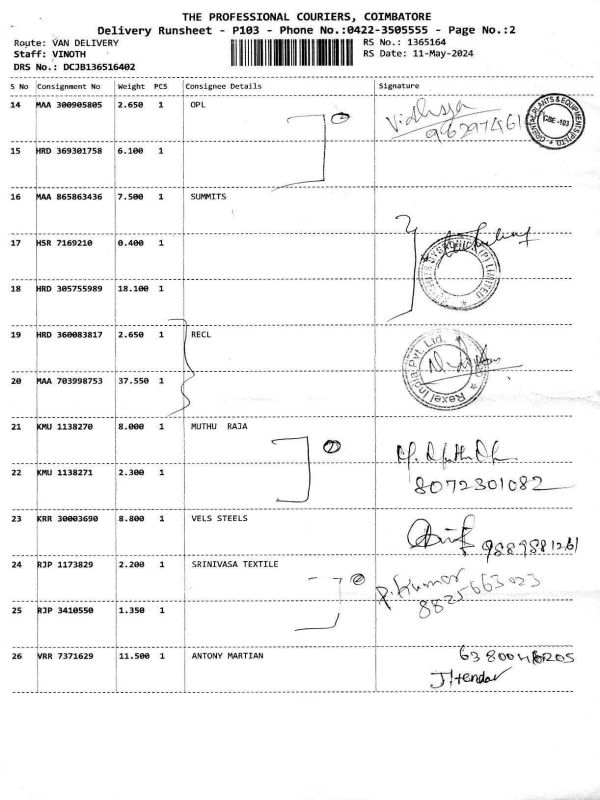 THE PROFESSIONAL COURIERS, COIMBATORE
Delivery Runsheet - P103 - Phone No.:0422-3505555 - Page No.:2
Route: VAN DELIVERY
RS No.: 1365164
Staff: VINOTH
RS Date: 11-May-2024
DRS No.: DCJB136516402
S No Consignment No Weight PCS Consignee Details Signature
14 MAA 300905805 2.650 1 OPL
CBE -103
15 HRD 369301758 6.100 1
16 MAA 865863436 7.500 1 SUMMITS
17 HSR 7169210 0.400 1
18 HRD 305755989 18.100 1
19 HRD 360083817 2.650 1 RECL
Rexel India Pvt. Ltd.
20 MAA 703998753 37.550 1
21 KMU 1138270 8.000 1 MUTHU RAJA
22 KMU 1138271 2.300 1
8072301082
23 KRR 30003690 8.800 1 VELS STEELS
9889881261
24 RJP 1173829 2.200 1 SRINIVASA TEXTILE
P. Kumar
8825663023
25 RJP 3410550 1.350 1
26 VRR 7371629 11.500 1 ANTONY MARTIAN
Jitendar